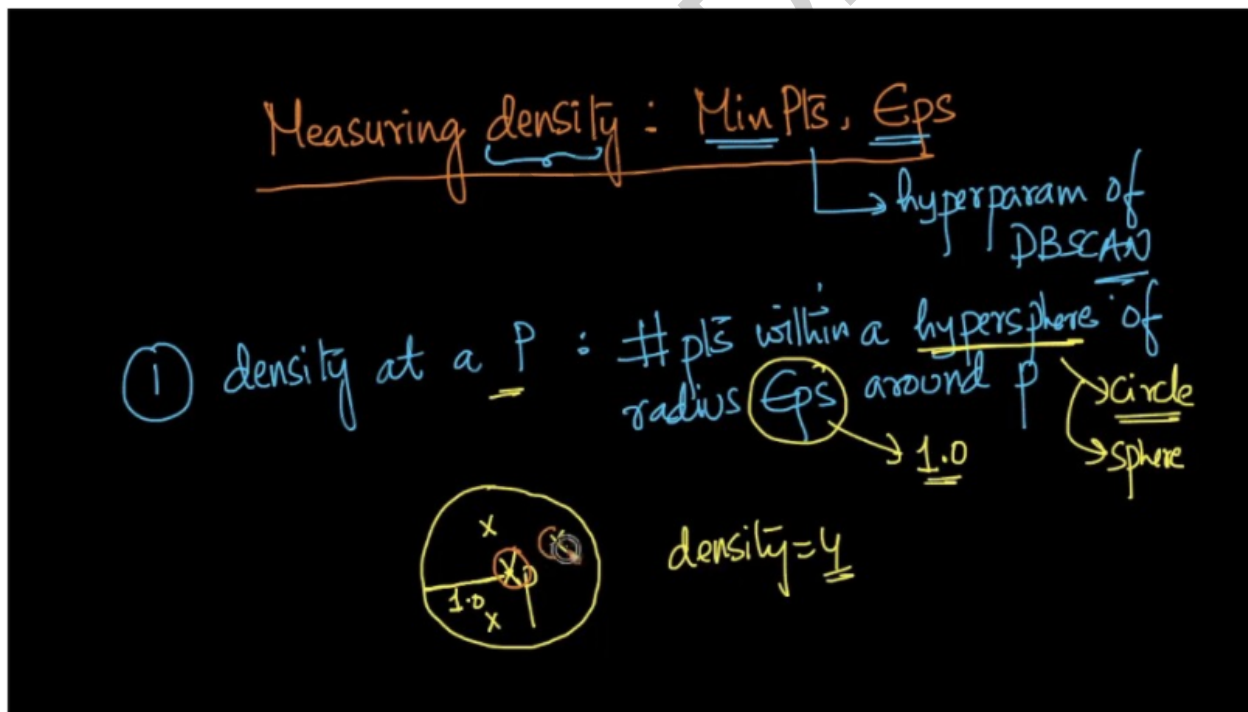 Measuring density : MinPts, Eps
hyperparam of
DBSCAN
1 density at a P : #pts within a hypersphere of
radius Eps around p
circle
sphere
1.0
x
x
x p
1.0
x
density=4